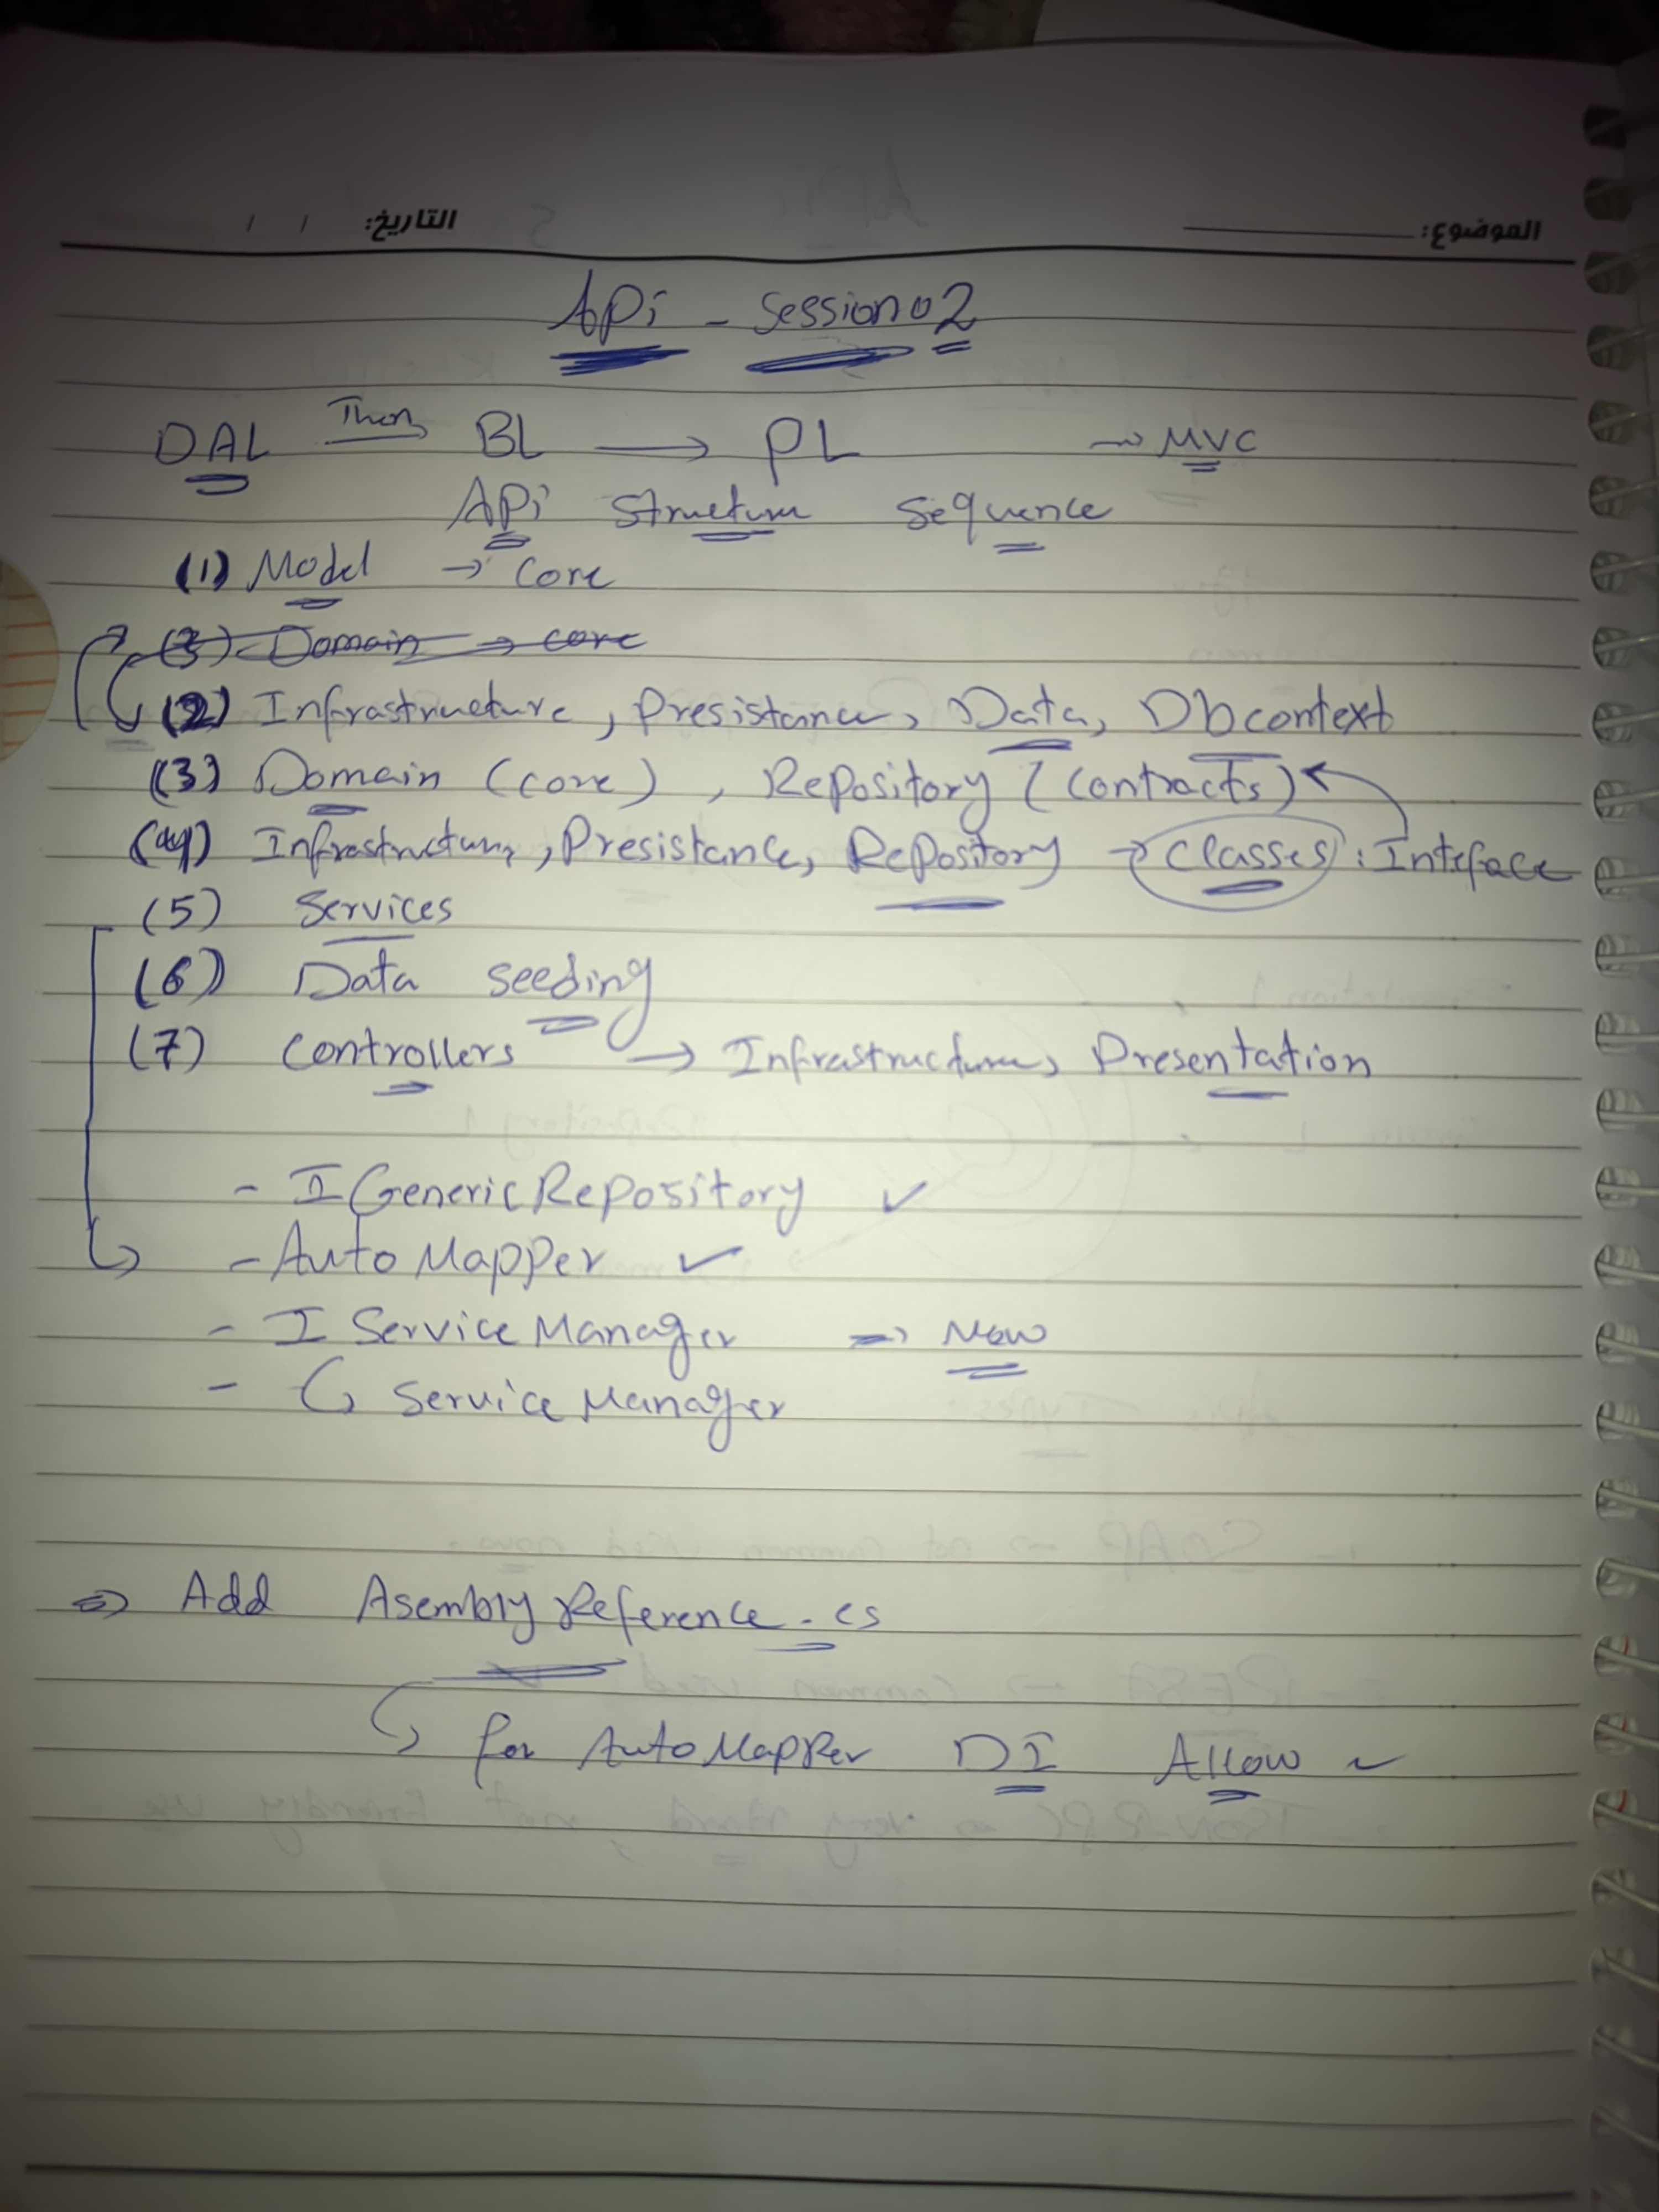 الموضوع: التاريخ: / /
APi - Session 02
DAL Then BL → PL → MVC
APi Structure Sequence
(1) Model → Core
(3) Domain → core
(2) Infrastructure, Presistance, Data, Dbcontext
(3) Domain (core), Repository (Contracts)
(4) Infrastructure, Presistance, Repository → Classes : Inteface
(5) Services
(6) Data seeding
(7) Controllers → Infrastructure, Presentation
- IGenericRepository ✓
- Auto Mapper ✓
- I Service Manager ⇒ Now
- ↳ Service Manager
⇒ Add Asembly Reference.cs
↳ for Auto Mapper DI Allow